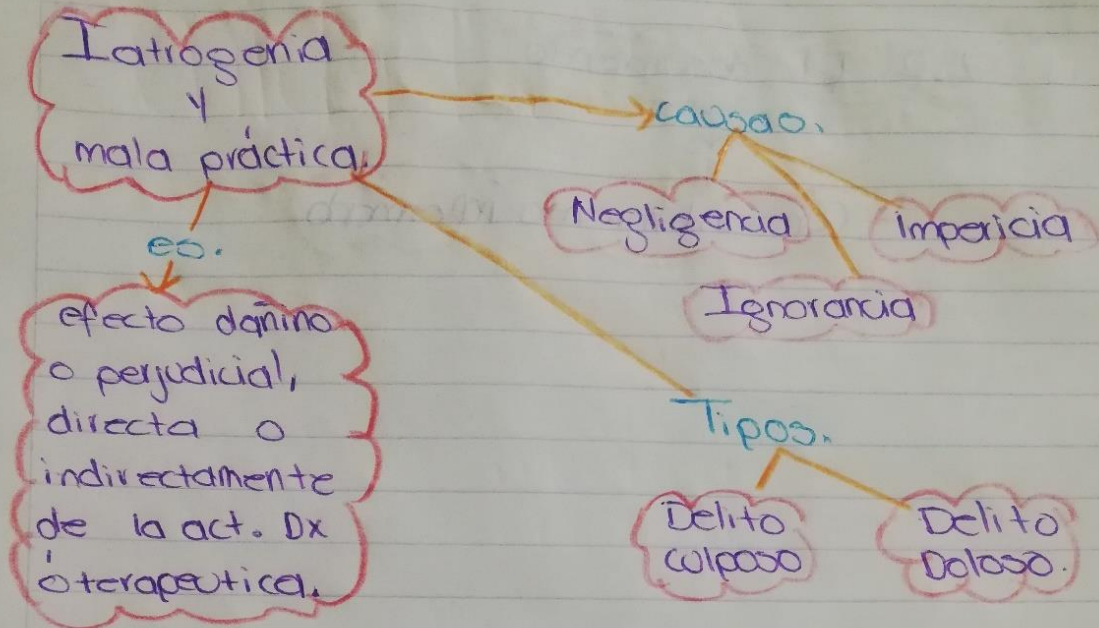 Iatrogenia
y
mala práctica.
es.
efecto dañino
o perjudicial,
directa o
indirectamente
de la act. Dx
ó terapeutica.
causas.
Negligencia
Impericia
Ignorancia
Tipos.
Delito
culposo
Delito
Doloso.